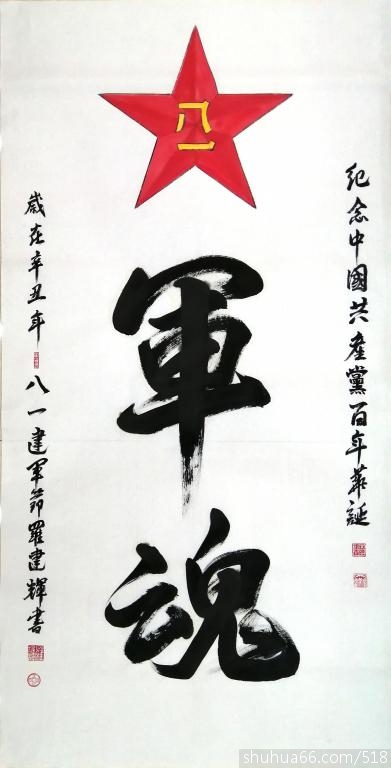 八一
紀念中國共產黨百年華誕
軍魂
歲在辛丑年
八一建軍節羅建輝書
shuhua66.com/518